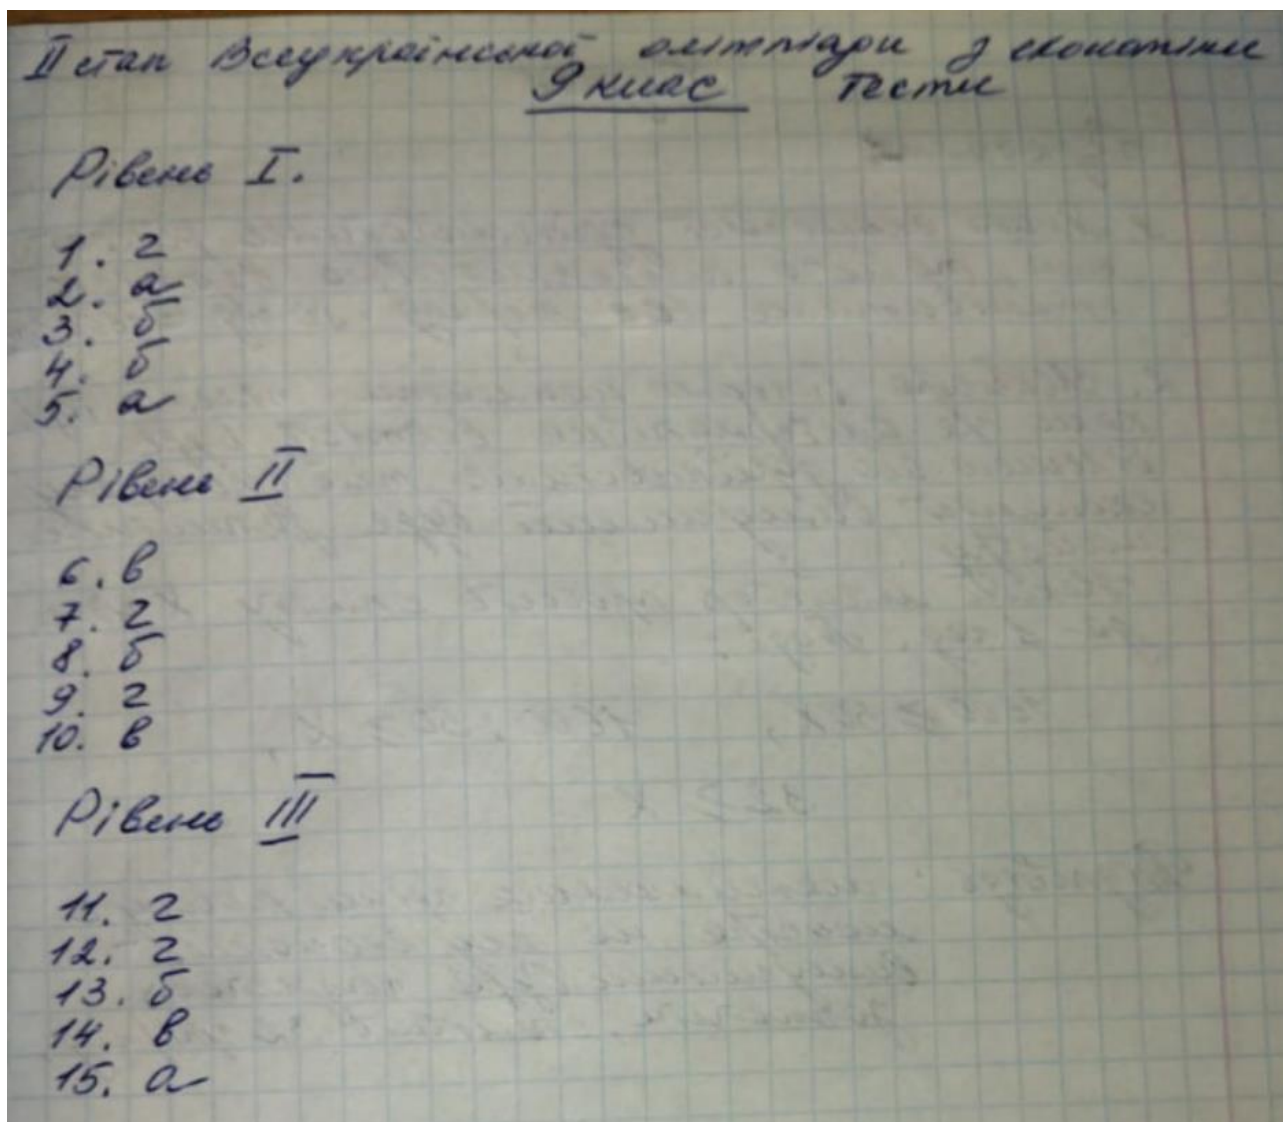 II етап Всеукраїнської олімпіади з економіки
9 клас Тести
Рівень I.
1. г
2. а
3. б
4. б
5. а
Рівень II
6. в
7. г
8. б
9. г
10. в
Рівень III
11. г
12. г
13. б
14. в
15. а